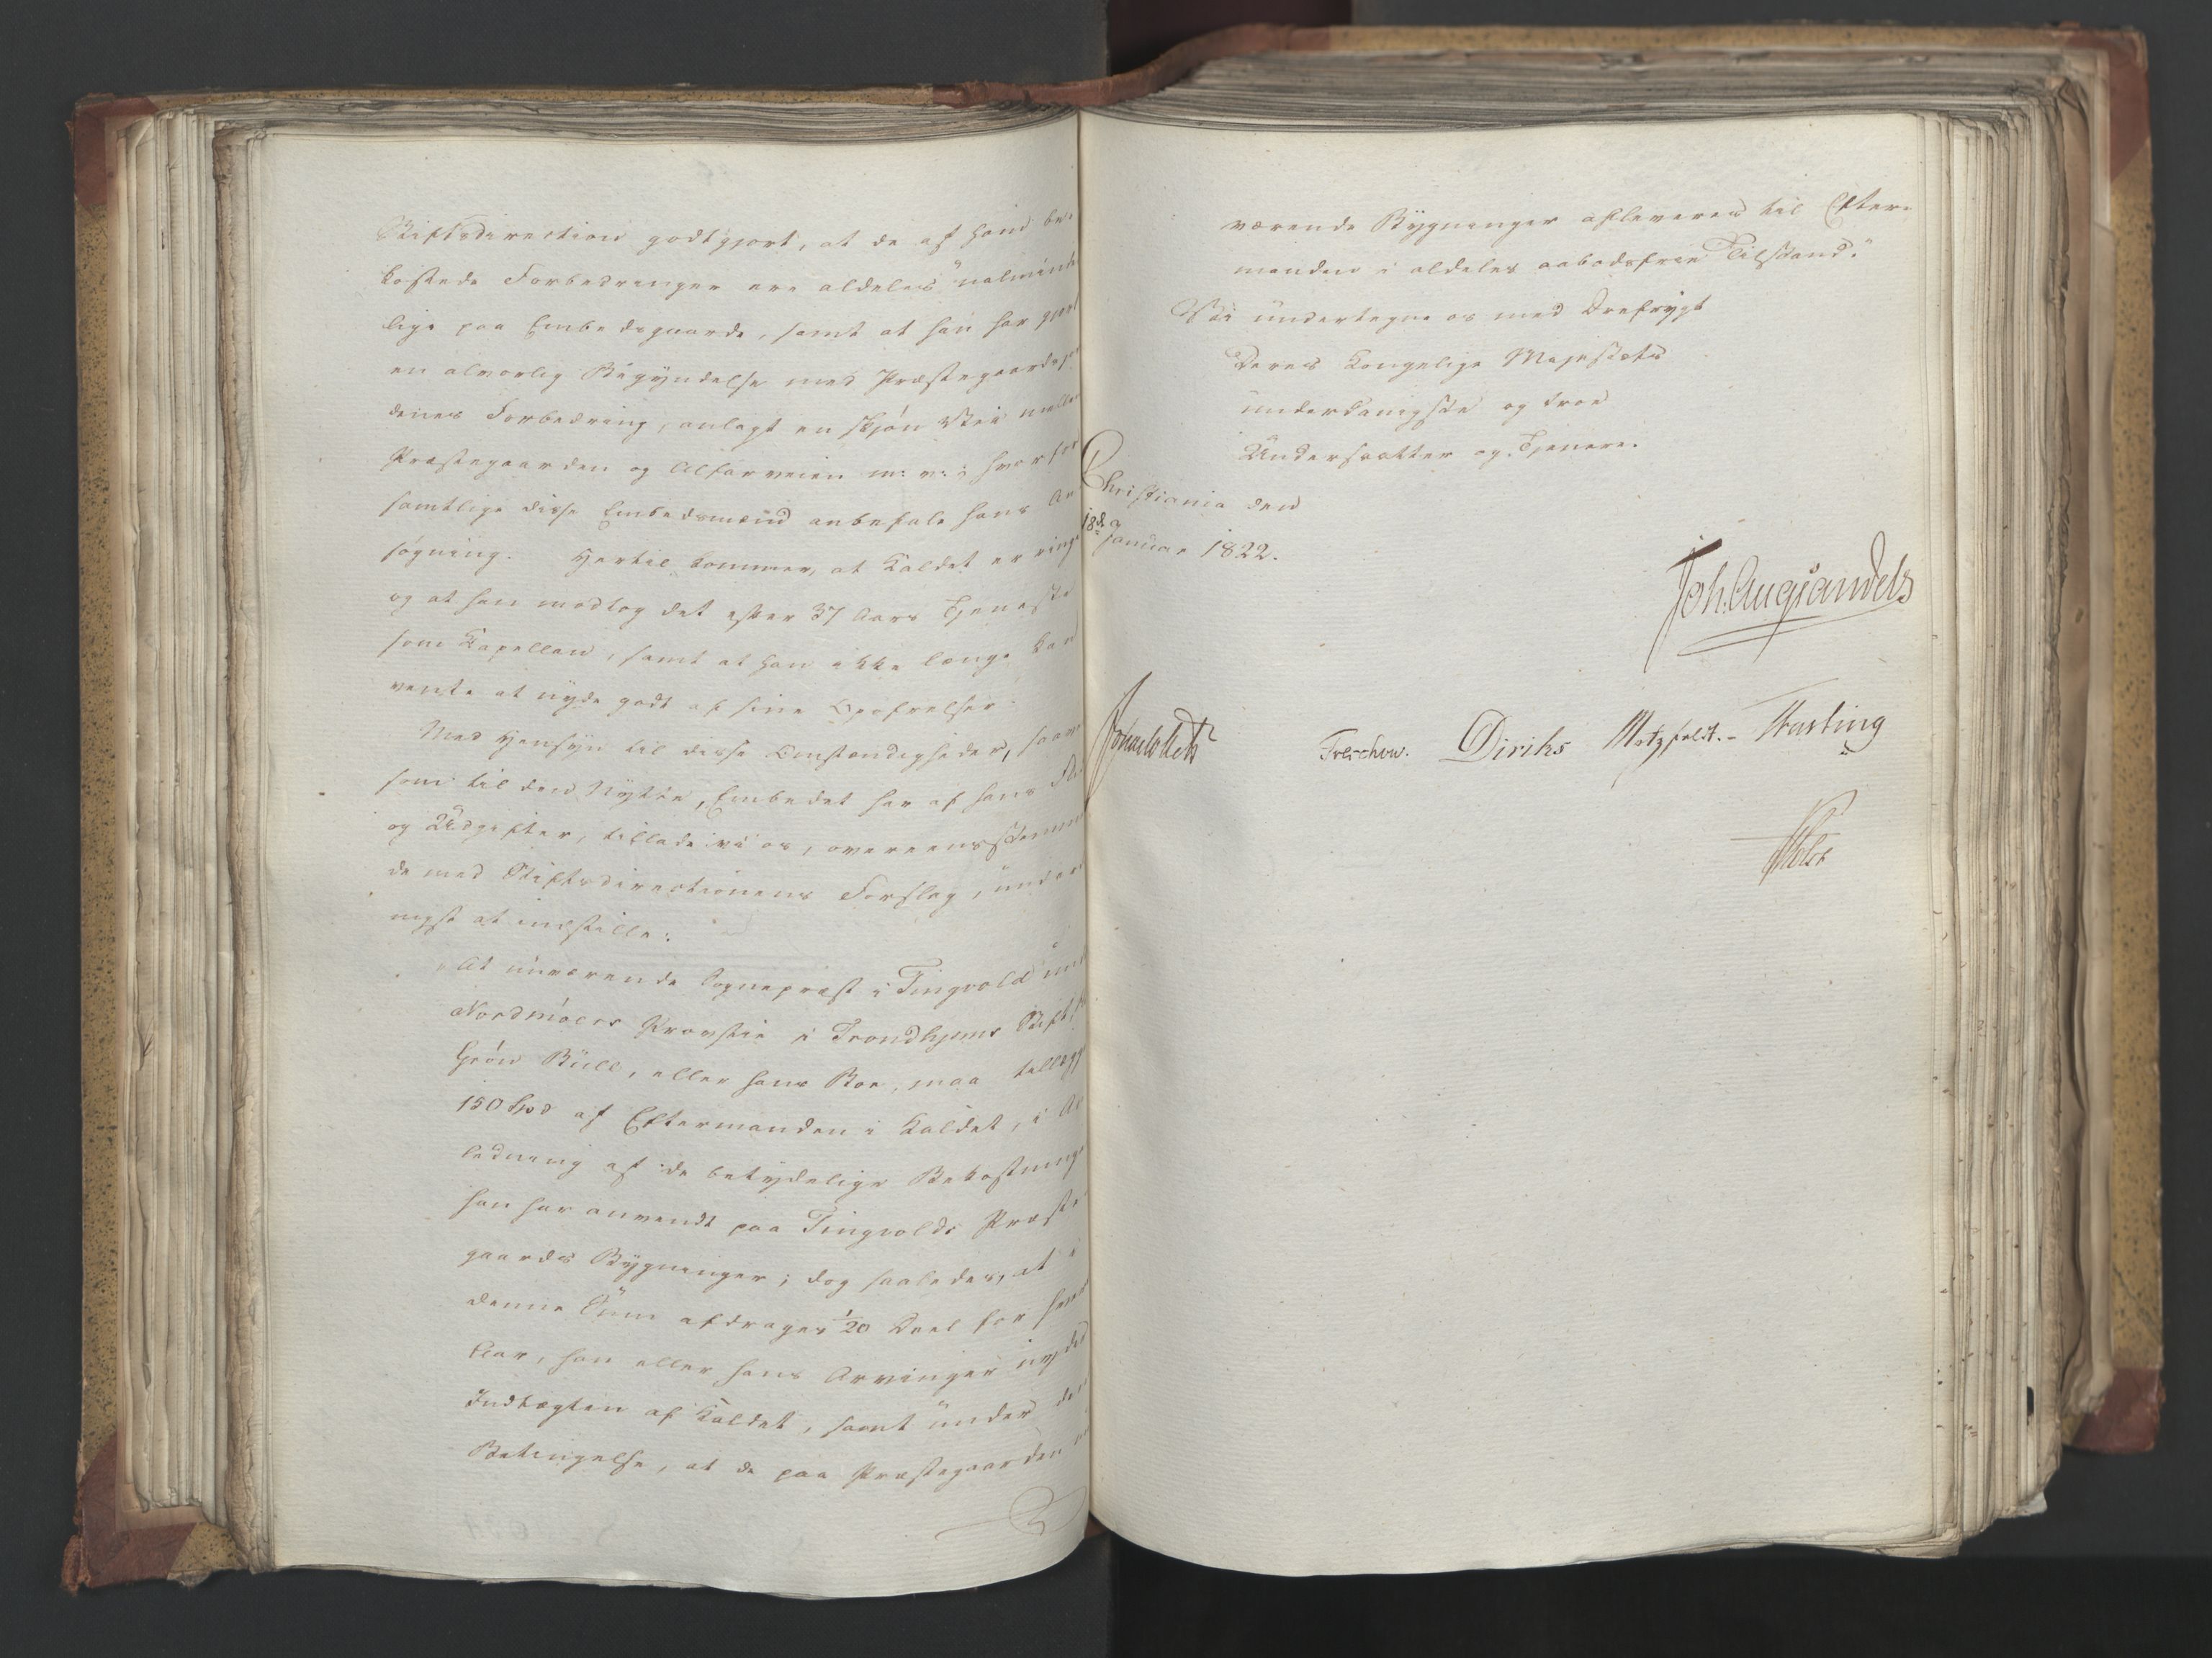 Stiftsdirection godtgjort, at de af ham be-
kostede Forbedringer ere aldeles ualminde
lige paa Embedsgaarde, samt at han har gjort
en alvorlig Begyndelse med Præstegaardsjor
denes Forbedring, anlagt en skjøn Vei mellem
Præstegaarden og Alfarveien m: v: ; hvorfor
samtlige disse Embedsmænd anbefale hans An
søgning. Hertil kommer, at Kaldet er ringe
og at han modtog det efter 37 Aars Tjeneste
som Kapellan, samt at han ikke længe kan
vente at nyde godt af sine Opofrelser.
Med Hensyn til disse Omstændigheder, saavel
som til den Nytte, Embedet har af hans
og Udgifter, tillade vi os, overeensstemmen
de med Stiftsdirectionens Forslag, underda
nigst at indstille:
"At nuværende Sogneprest i Tingvold under
Nordmøers Provstie i Trondhjems Stift,
Grøn Bull, eller hans Boe, maa tillægges
150 Spd af Eftermanden i Kaldet, i An
ledning af de betydelige Bekostninger
han har anvendt paa Tingvolds Præste
gaards Bygninger; dog saaledes, at i
denne Sum afdrages 1/20 Deel for hvert
Aar, han eller hans Arvinger nyde
Indtægten af Kaldet, samt under den
Betingelse, at de paa Præstegaarden nu
værende Bygninger afleveres til Efter-
manden i aldeles aabodsfrie Tilstand."
Vi undertegne os med Ærefrygt
Deres Kongelige Majestæts
underdanigste og troe
Undersaatter og Tjenere.
Christiania den
18de Januar 1822.
Joh. Aug Sandels
Sommerhielm
Treschow. Diriks Motzfeldt. Fasting
Holst